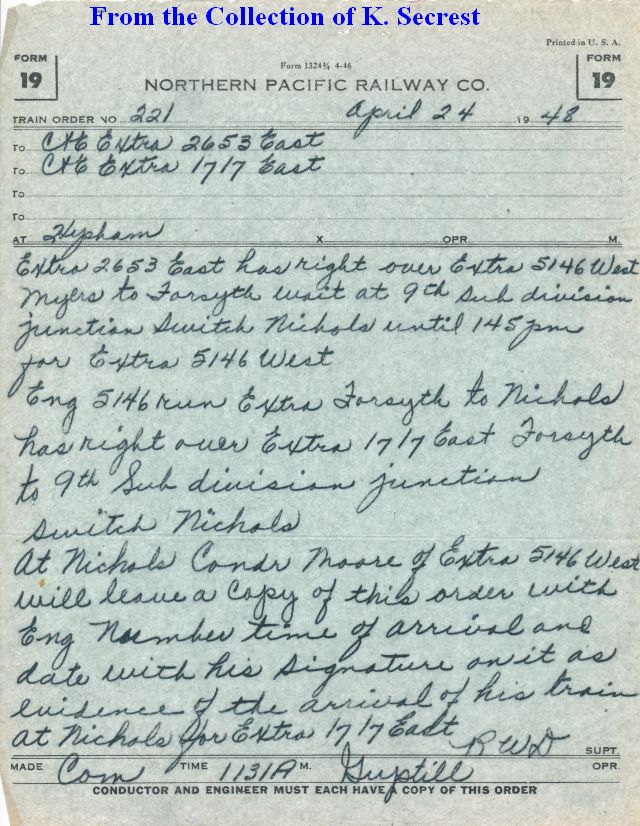 From the Collection of K. Secrest
Printed in U. S. A.
FORM 19
Form 1324¾ 4-46
FORM 19
NORTHERN PACIFIC RAILWAY CO.
TRAIN ORDER NO 221 April 24 19 48
To C&E Extra 2653 East
To C&E Extra 1717 East
To
To
AT Hysham X OPR. M.
Extra 2653 East has right over Extra 5146 West
Myers to Forsyth wait at 9th Sub division
junction Switch Nichols until 145 pm
for Extra 5146 West
Eng 5146 run Extra Forsyth to Nichols
has right over Extra 1717 East Forsyth
to 9th Sub division junction
switch Nichols
At Nichols Condr Moore of Extra 5146 West
will leave a copy of this order with
Eng Number time of arrival and
date with his signature on it as
evidence of the arrival of his train
at Nichols for Extra 1717 East
R W D SUPT.
MADE Com TIME 1131A M. Guptill OPR.
CONDUCTOR AND ENGINEER MUST EACH HAVE A COPY OF THIS ORDER